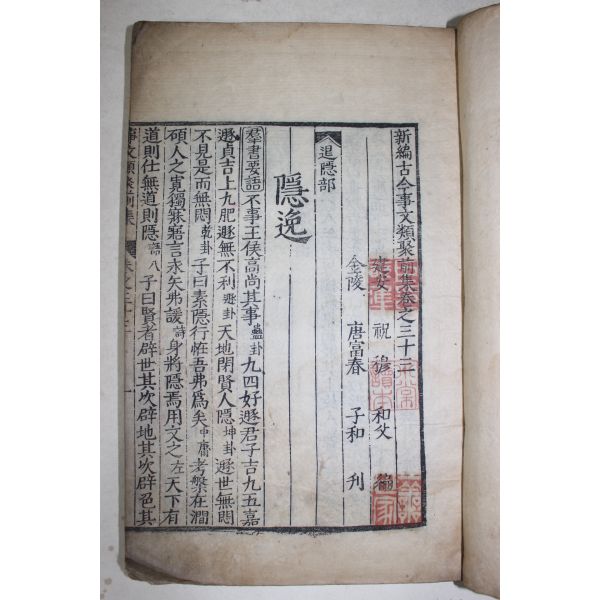 新編古今事文類聚前集卷之三十三
建安 祝 穆 和父 編
金陵 唐富春 子和 刋
退隱部
隱逸
羣書要語 不事王侯高尚其事 蠱卦 九四好遯君子吉九五嘉
遯貞吉上九肥遯無不利 遯卦 天地閉賢人隱 坤卦 遯世無悶
不見是而無悶 乾卦 子曰素隱行怪吾弗爲矣 中庸 考槃在澗
碩人之寬獨寐寤言永矢弗諼 詩 身將隱焉用文之 左 天下有
道則仕無道則隱 語八 子曰賢者辟世其次辟地其次辟邑其
事文類聚前集 卷之三十三